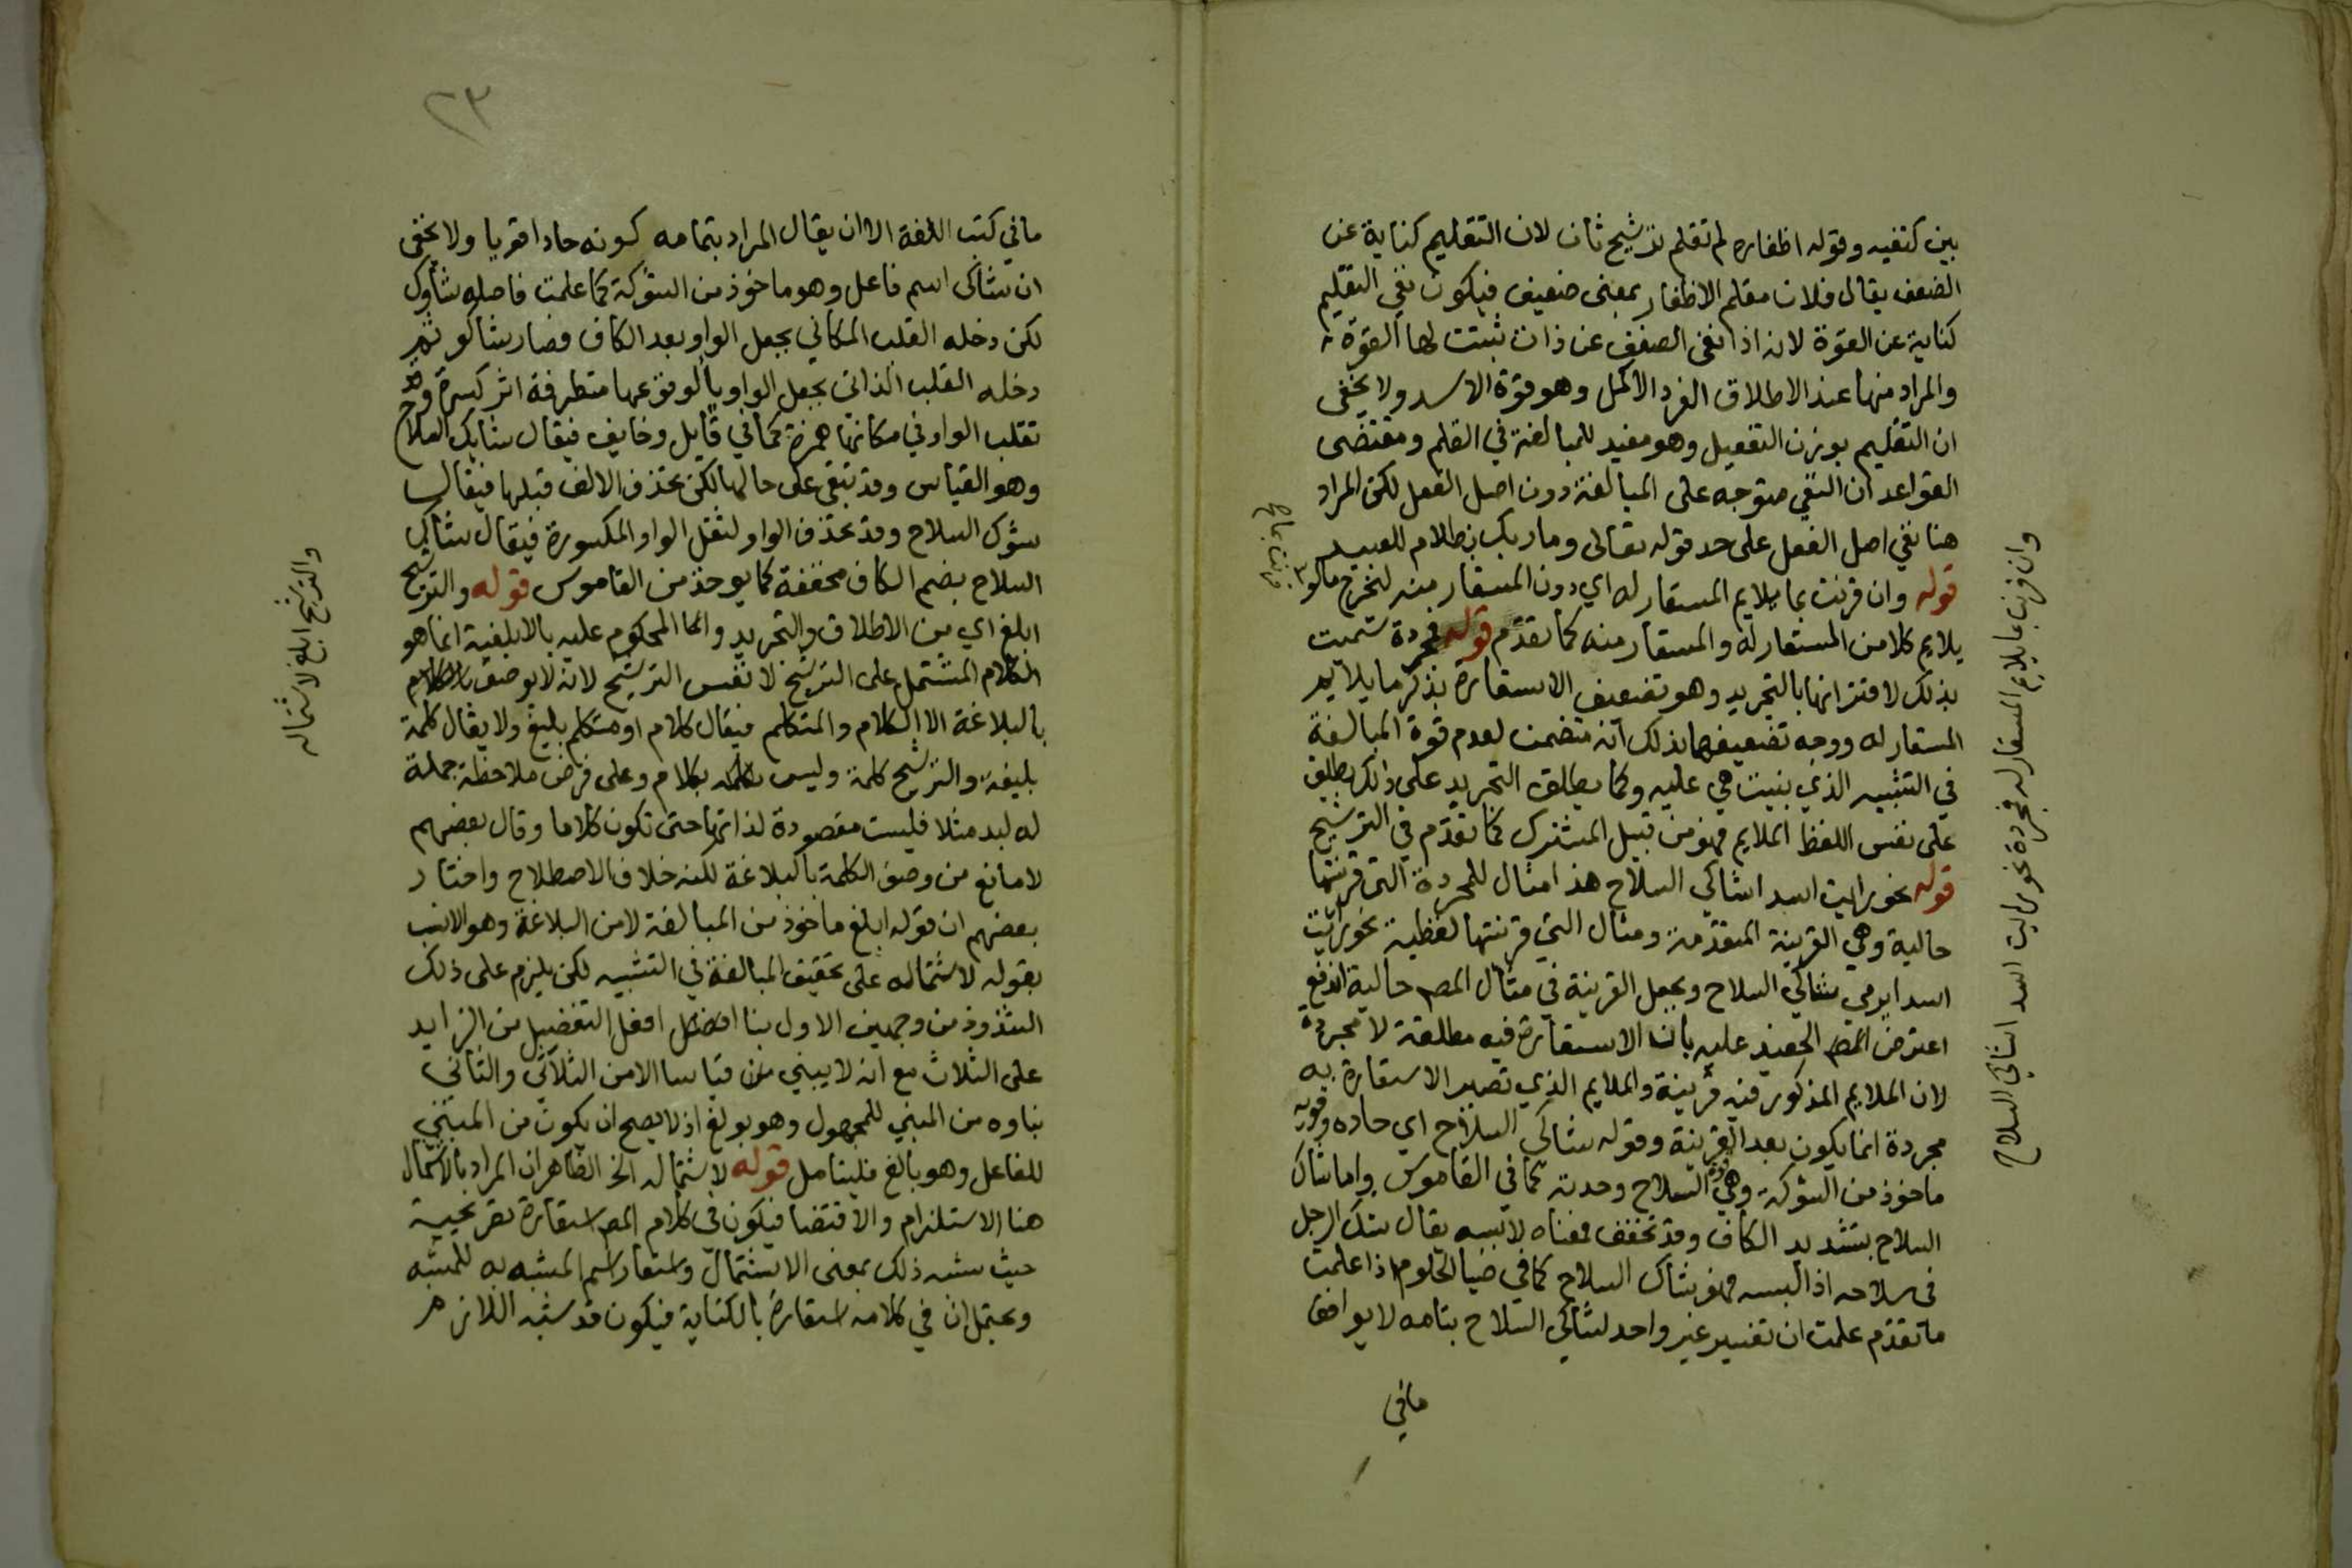 بين كتفيه وقوله اظفاره لم تقلم ترشيح ثان لان التقليم كناية عن
الضعف يقال فلان مقلم الاظفار بمعنى ضعيف فيكون نفي التقليم
كناية عن القوة لانه اذا نفى الضعف عن ذات ثبتت لها القوة
والمراد منها عند الاطلاق الفرد الاكمل وهو قوة الاسد ولا يخفى
ان التقليم بوزن التفعيل وهو مفيد للمبالغة في القلم ومقتضى
القواعد ان النفي متوجه على المبالغة دون اصل الفعل لكن المراد
هنا نفي اصل الفعل على حد قوله تعالى وما ربك بظلام للعبيد
قوله وان قرنت بما يلايم المستعار له اي دون المستعار منه ليخرج ما لو
قرنت بما
يلايم كلا من المستعار له والمستعار منه كما تقدم قوله فمجردة سميت
بذلك لاقترانها بالتجريد وهو تضعيف الاستعارة بذكر ما يلايم
المستعار له ووجه تضعيفها بذلك انه متضمن لعدم قوة المبالغة
في التشبيه الذي بنيت هي عليه وكما يطلق التجريد على ذلك يطلق
على نفس اللفظ الملايم فهو من قبيل المشترك كما تقدم في الترشيح
قوله نحو رايت اسدا شاكي السلاح هذا مثال للمجردة التي قرينتها
حالية وهي القرينة المتقدمة ومثال التي قرينتها لفظية نحو رايت
اسدا يرمي شاكي السلاح وبجعل القرينة في مثال المص حالية اندفع
اعتراض المص الحفيد عليه بان الاستعارة فيه مطلقة لا مجردة
لان الملايم المذكور فيه قرينة والملايم الذي تصير الاستعارة به
مجردة انما يكون بعد القرينة وقوله شاكي السلاح اي حاده وقويه
ماخوذ من الشوكة وهي السلاح وحدته كما في القاموس واما شاك
السلاح بتشديد الكاف وقد تخفف فمعناه لابسه يقال شك الرجل
في سلاحه اذا لبسه فهو شاك السلاح كما في ضيا الحلوم اذا علمت
ما تقدم علمت ان تفسير غير واحد لشاكي السلاح بتامه لا يوافق
مافي
وان قرنت بما يلايم المستعار له فمجردة نحو رايت اسدا شاكي السلاح
٢٣
ما في كتب اللغة الا ان يقال المراد بتمامه كونه حادا قويا ولا يخفى
ان شاكي اسم فاعل وهو ماخوذ من الشوكة كما علمت فاصله شاوك
لكن دخله القلب المكاني بجعل الواو بعد الكاف فصار شاكو ثم
دخله القلب الذاتي بجعل الواو يا لوقوعها متطرفة اثر كسرة وقد
تقلب الواو في مكانها همزة كما في قايل وخايف فيقال شايك السلاح
وهو القياس وقد تبقى على حالها لكن تحذف الالف قبلها فيقال
شوك السلاح وقد تحذف الواو لثقل الواو المكسورة فيقال شاك
السلاح بضم الكاف مخففة كما يوخذ من القاموس قوله والترشيح
ابلغ اي من الاطلاق والتجريد وانما المحكوم عليه بالابلغية انما هو
الكلام المشتمل على الترشيح لا نفس الترشيح لانه لا يوصف
بالبلاغة الا الكلام والمتكلم فيقال كلام او متكلم بليغ ولا يقال كلمة
بليغة والترشيح كلمة وليس بكلام وعلى فرض ملاحظة جملة
له لبد مثلا فليست مقصودة لذاتها حتى تكون كلاما وقال بعضهم
لا مانع من وصف الكلمة بالبلاغة لكنه خلاف الاصطلاح واختار
بعضهم ان قوله ابلغ ماخوذ من المبالغة لا من البلاغة وهو الانسب
بقوله لاشتماله على تحقيق المبالغة في التشبيه لكن يلزم على ذلك
الشذوذ من وجهين الاول بنا افعل التفضيل من الزايد
على الثلاث مع انه لا يبني من قياسا الا من الثلاثي والثاني
بناوه من المبني للمجهول وهو بولغ اذ لا يصح ان يكون من المبني
للفاعل وهو بالغ فليتامل قوله لاشتماله الخ الظاهر ان المراد بالاشتمال
هنا الاستلزام والاقتضا فيكون في كلام المص استعارة تصريحية
حيث شبه ذلك بمعنى الاشتمال واستعار اسم المشبه به للمشبه
ويحتمل ان في كلامه استعارة بالكناية فيكون قد شبه اللازم
والترشيح ابلغ لاشتماله